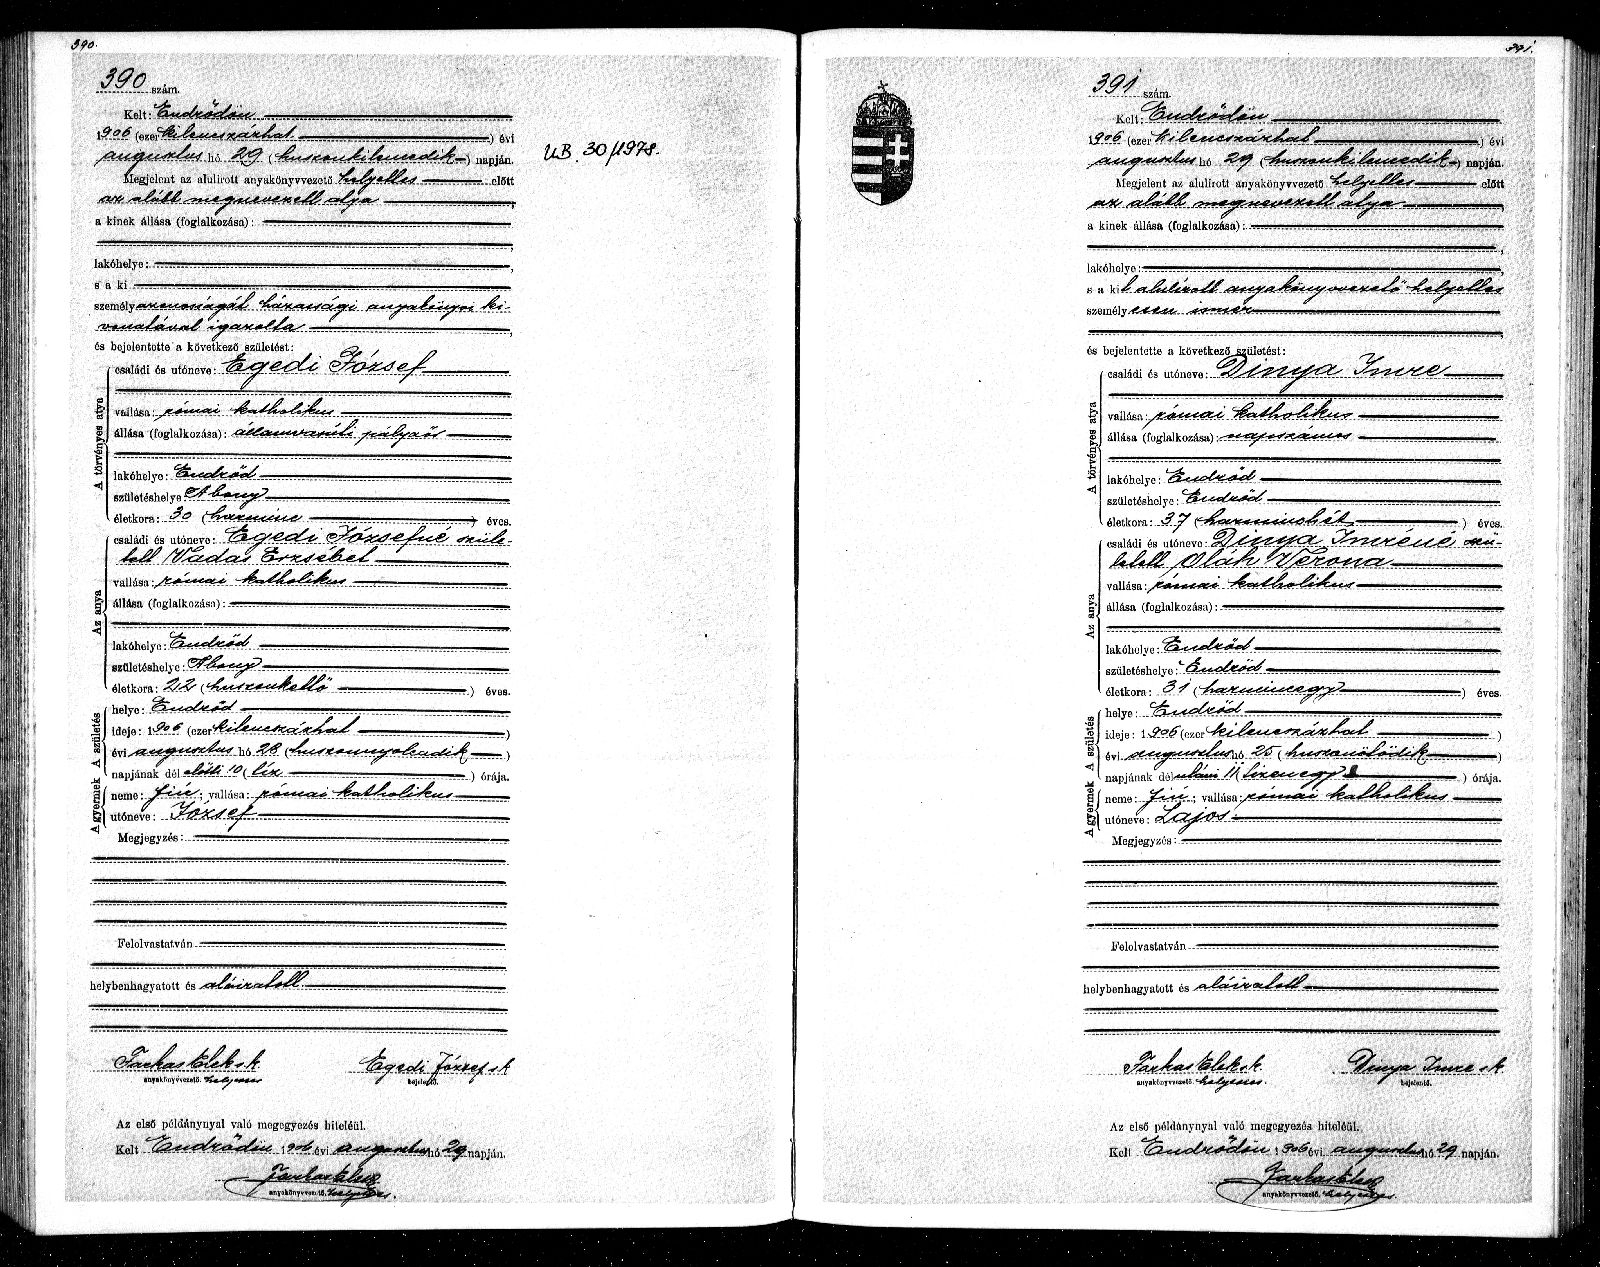 390.
390 szám.
Kelt: Endrődön
1906 (ezer kilenczszázhat ) évi
augusztus hó 29 (huszonkilenczedik ) napján.
Megjelent az alulirott anyakönyvvezető helyettes előtt
az alább megnevezett atya ,
a kinek állása (foglalkozása):
,
lakóhelye: ,
s a ki
személyazonosságát házassági anyakönyvi ki-
vonatával igazolta
és bejelentette a következő születést:
A törvényes atya
családi és utóneve: Egedi József
vallása: római katholikus
állása (foglalkozása): államvasúti pályaőr
lakóhelye: Endrőd
születéshelye Abony
életkora: 30 (harmincz ) éves.
Az anya
családi és utóneve: Egedi Józsefné szüle-
tett Vadas Erzsébet
vallása: római katholikus
állása (foglalkozása):
lakóhelye: Endrőd
születéshelye: Abony
életkora: 22 (huszonkettő ) éves.
A születés
helye: Endrőd
ideje: 1906 (ezer kilenczszázhat )
évi augusztus hó 28 (huszonnyolczadik )
napjának dél előtti 10 (tíz ) órája.
A gyermek
neme: fiú; vallása: római katholikus
utóneve: József
Megjegyzés:
Felolvastatván
helybenhagyatott és aláiratott
Farkas Elek sk Egedi József sk
anyakönyvvezető. helyettes bejelentő.
Az első példánynyal való megegyezés hiteléül.
Kelt Endrődön 1906 évi augusztus hó 29 napján.
Farkas Elek
anyakönyvvezető. helyettes.
UB. 30/1978.
391.
391 szám.
Kelt: Endrődön
1906 (ezer kilenczszázhat ) évi
augusztus hó 29 (huszonkilenczedik ) napján.
Megjelent az alulirott anyakönyvvezető helyettes előtt
az alább megnevezett atya ,
a kinek állása (foglalkozása):
,
lakóhelye: ,
s a kit alulirott anyakönyvvezető helyettes
személyesen ismer
és bejelentette a következő születést:
A törvényes atya
családi és utóneve: Dinya Imre
vallása: római katholikus
állása (foglalkozása): napszámos
lakóhelye: Endrőd
születéshelye: Endrőd
életkora: 37 (harminchét ) éves.
Az anya
családi és utóneve: Dinya Imréné szü-
letett Oláh Verona
vallása: római katholikus
állása (foglalkozása):
lakóhelye: Endrőd
születéshelye: Endrőd
életkora: 31 (harminczegy ) éves.
A születés
helye: Endrőd
ideje: 1906 (ezer kilenczszázhat )
évi augusztus hó 25 (huszonötödik )
napjának dél utáni 11 (tizenegy ) órája.
A gyermek
neme: fiú; vallása: római katholikus
utóneve: Lajos
Megjegyzés:
Felolvastatván
helybenhagyatott és aláiratott
Farkas Elek sk. Dinya Imre sk.
anyakönyvvezető. helyettes. bejelentő.
Az első példánynyal való megegyezés hiteléül.
Kelt Endrődön 1906 évi augusztus hó 29 napján.
Farkas Elek
anyakönyvvezető. helyettes